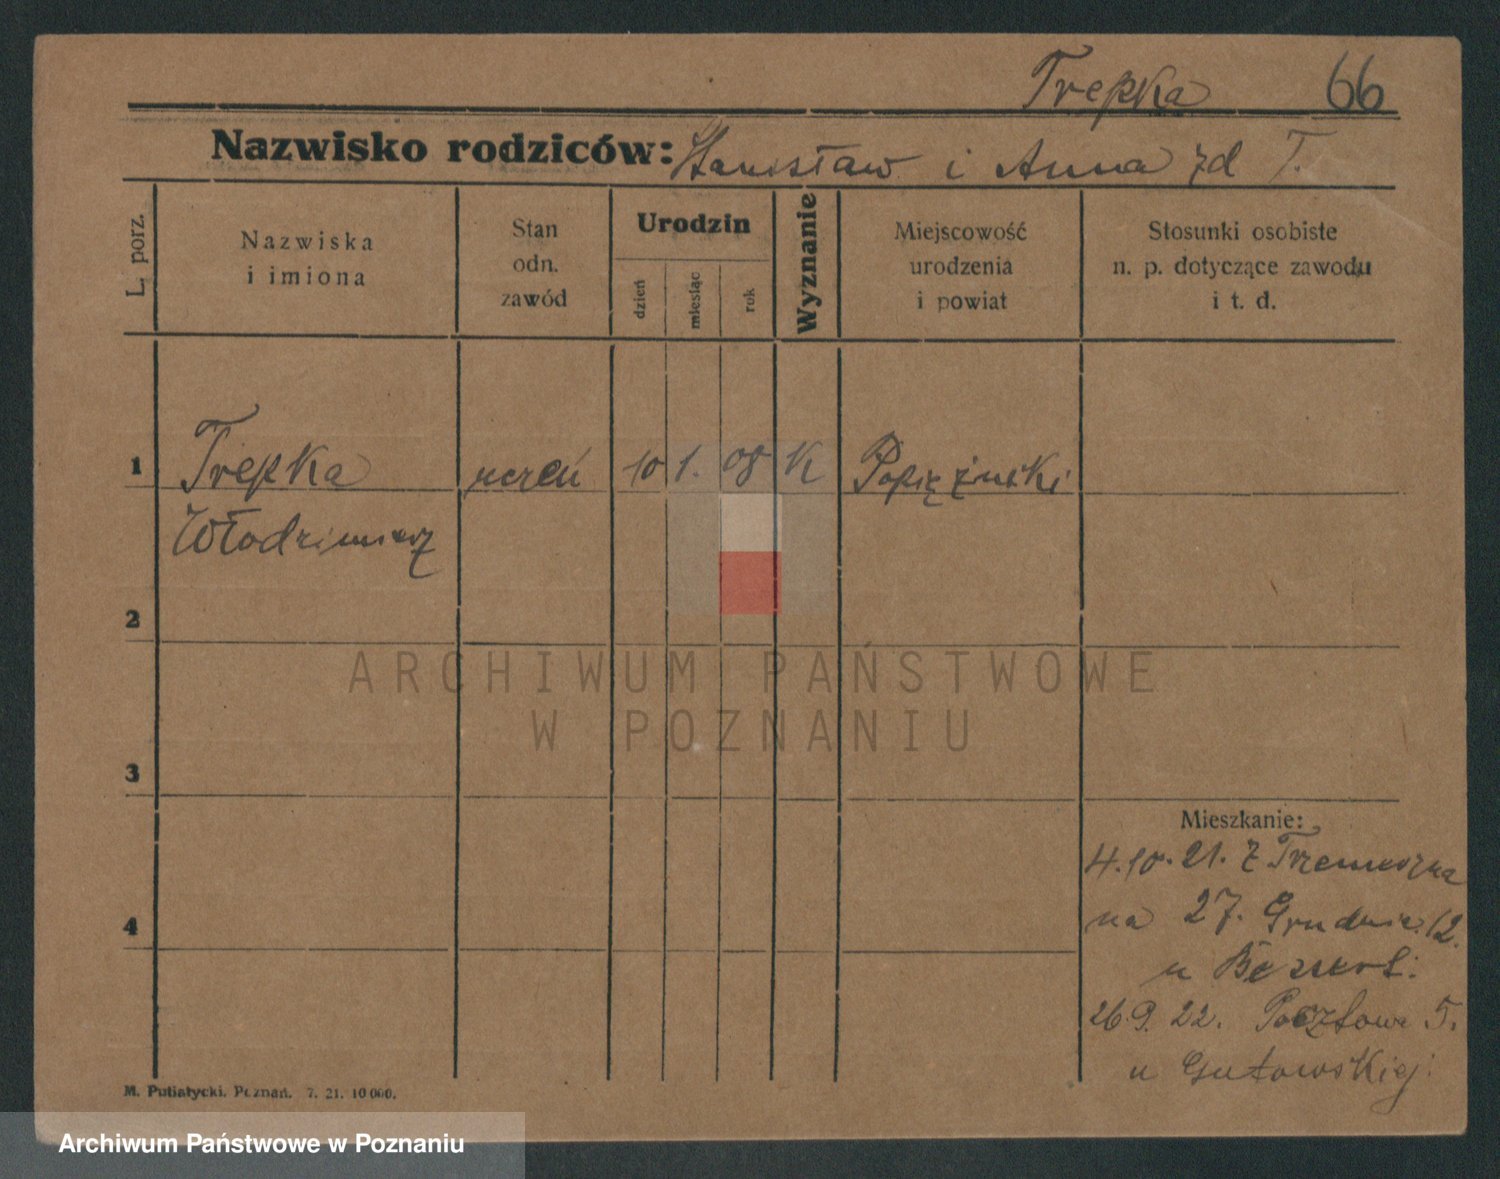 Trepka 66
Nazwisko rodziców: Stanisław i Anna zd T.
L. porz.
Nazwiska
i imiona
Stan
odn.
zawód
Urodzin
dzień
miesiąc
rok
Wyznanie
Miejscowość
urodzenia
i powiat
Stosunki osobiste
n. p. dotyczące zawodu
i t. d.
1 Trepka uczeń 10 1. 08 K
Włodzimierz
2
3
4
Mieszkanie:
4.10.21. z Trzemeszna
na 27. Grudnia 12.
u
26.9.22. Pocztowa 5.
u Gutowskiej
M. Putiatycki. Poznań. 7. 21. 10 000.
ARCHIWUM PAŃSTWOWE
W POZNANIU
Archiwum Państwowe w Poznaniu